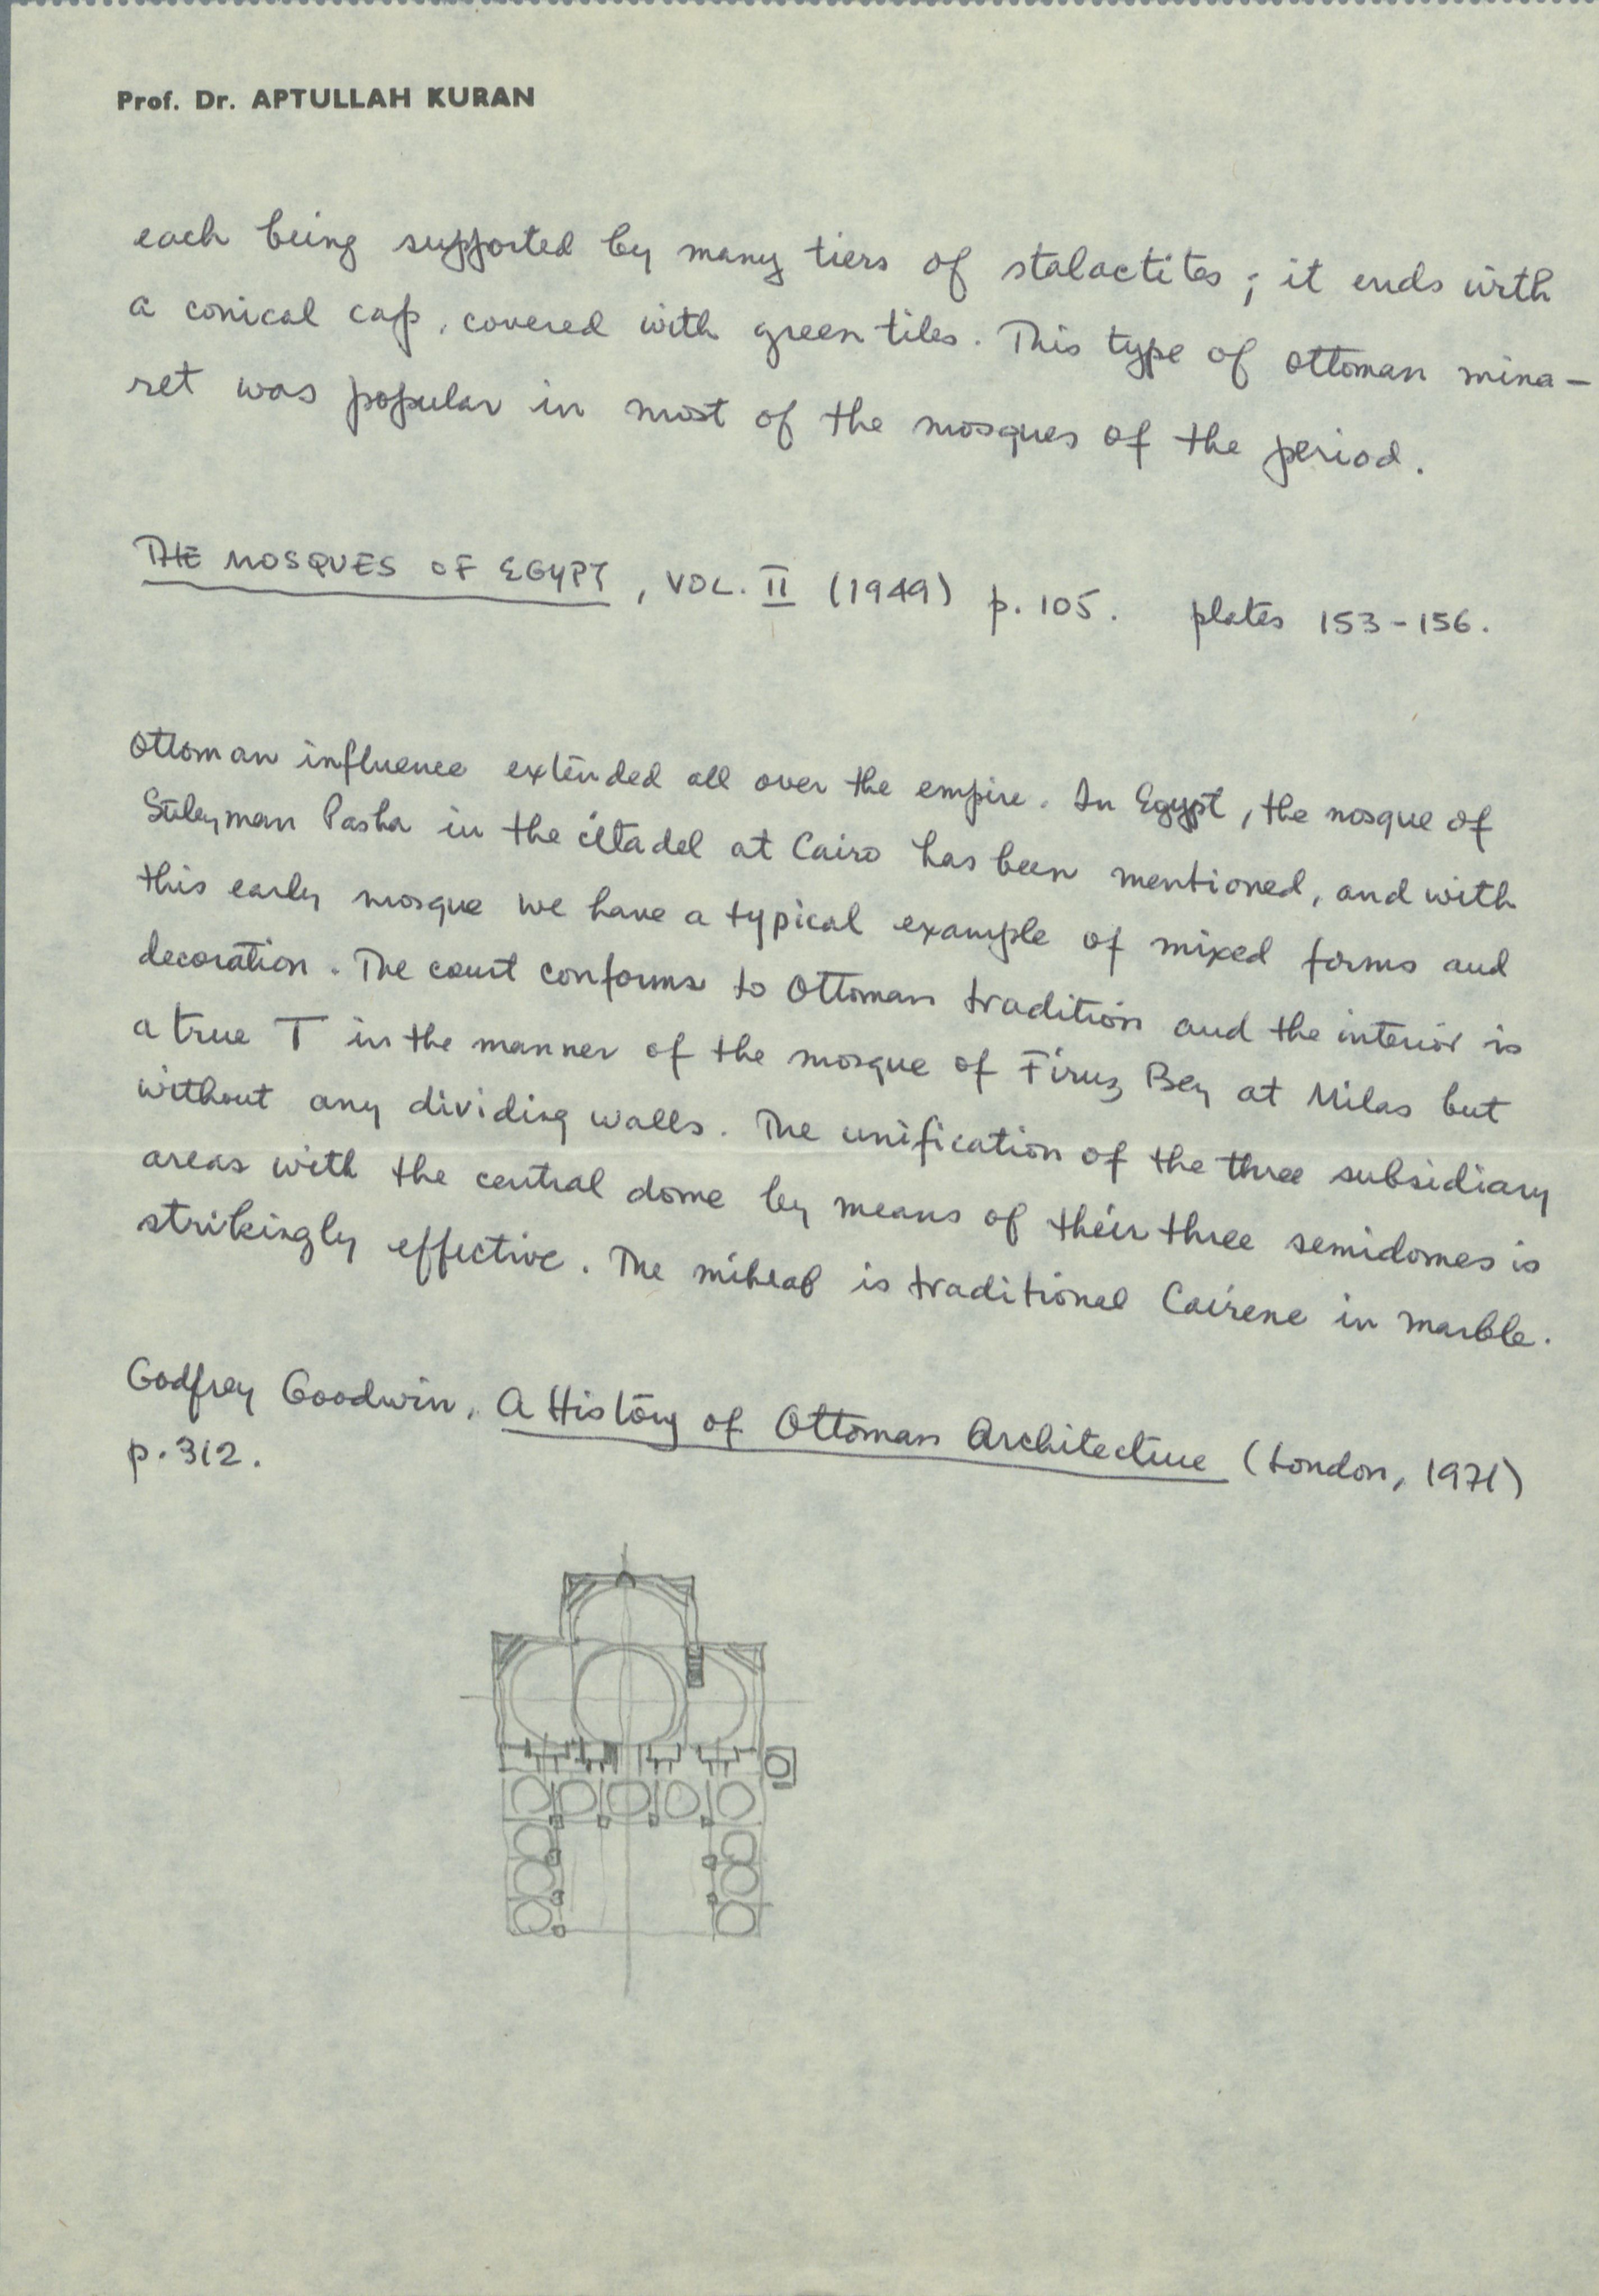 Prof. Dr. APTULLAH KURAN
each being supported by many tiers of stalactites ; it ends with
a conical cap, covered with green tiles. This type of Ottoman mina-
ret was popular in most of the mosques of the period.
THE MOSQUES OF EGYPT, VOL. II (1949) p. 105. plates 153-156.
Ottoman influence extended all over the empire. In Egypt, the mosque of
Süleyman Pasha in the citadel at Cairo has been mentioned, and with
this early mosque we have a typical example of mixed forms and
decoration. The court conforms to Ottoman tradition and the interior is
a true T in the manner of the mosque of Firuz Bey at Milas but
without any dividing walls. The unification of the three subsidiary
areas with the central dome by means of their three semidomes is
strikingly effective. The mihrab is traditional Cairene in marble.
Godfrey Goodwin, A History of Ottoman Architecture (London, 1971)
p. 312.